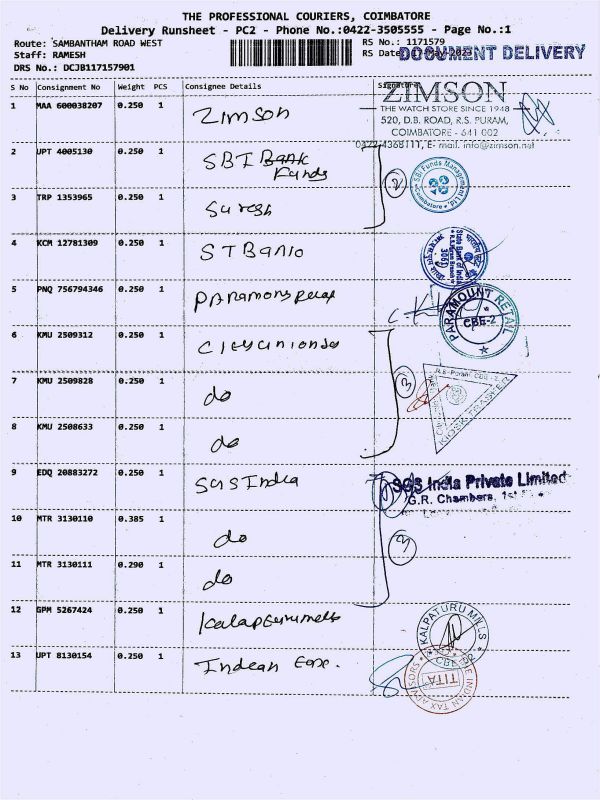 THE PROFESSIONAL COURIERS, COIMBATORE
Delivery Runsheet - PC2 - Phone No.:0422-3505555 - Page No.:1
Route: SAMBANTHAM ROAD WEST
RS No.: 1171579
Staff: RAMESH
RS Date: 17-May-2023
DOCUMENT DELIVERY
DRS No.: DCJB117157901
S No Consignment No Weight PCS Consignee Details Signature
1 MAA 600038207 0.250 1 Zimson
ZIMSON
THE WATCH STORE SINCE 1948
520, D.B. ROAD, R.S. PURAM,
COIMBATORE - 641 002
0422-4368111, E- mail. info@zimson.net
2 UPT 4005130 0.250 1 SBI Bank
Funds
SBI Funds Management Pvt. Ltd.
Coimbatore
2
3 TRP 1353965 0.250 1 Suresh
4 KCM 12781309 0.250 1 ST Bank
State Bank of India
5 PNQ 756794346 0.250 1
PARAMOUNT RETAIL
CBE-2
6 KMU 2509312 0.250 1
3
R.S. Puram, CBE - 2
7 KMU 2509828 0.250 1 do
8 KMU 2508633 0.250 1 do
9 EDQ 20883272 0.250 1 SGS India
SGS India Private Limited
G.R. Chambers, 1st
10 MTR 3130110 0.385 1 do
3
11 MTR 3130111 0.290 1 do
12 GPM 5267424 0.250 1
KALPATURU MILLS
CBE-02
13 UPT 8130154 0.250 1 Indean
THE INDIAN TAX ADVISORS
TITA